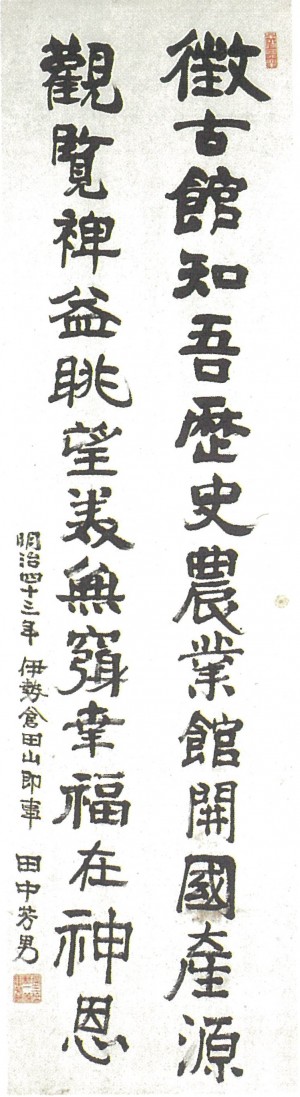 徵古館知吾歷史農業館開國產源
觀覽裨益眺望美無窮幸福在神恩
明治四十三年 伊勢倉田山即事 田中芳男